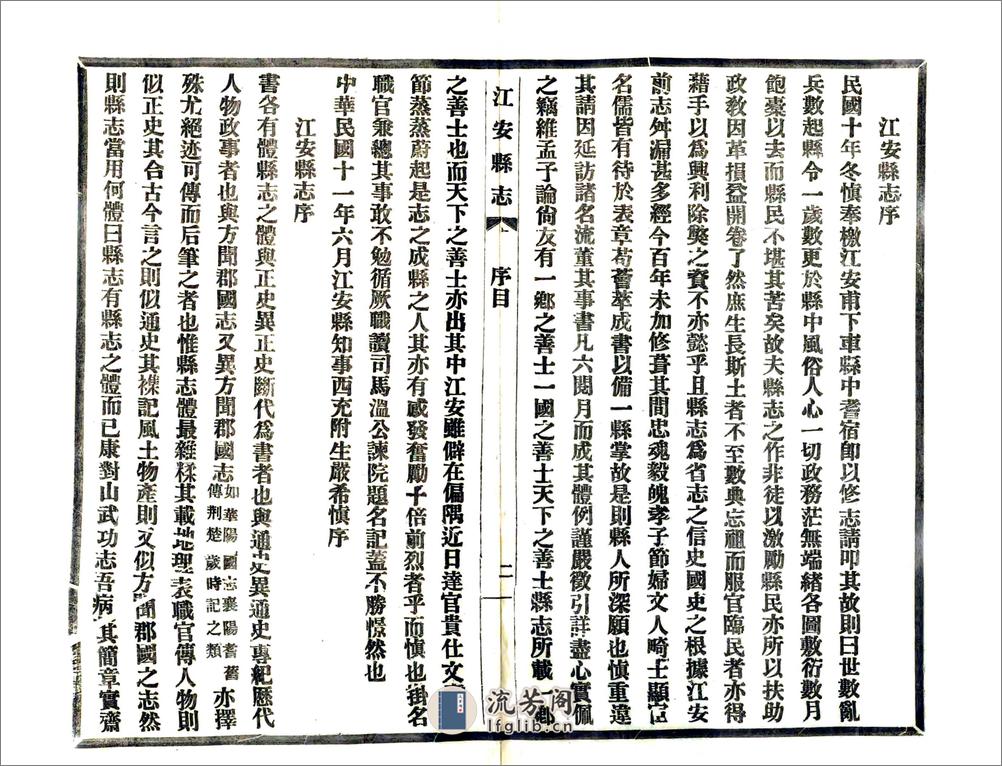 江安縣志序
民國十年冬慎奉檄江安甫下車縣中耆宿卽以修志請叩其故則曰世數亂
兵數起縣令一歲數更於縣中風俗人心一切政務茫無端緒各圖敷衍數月
飽橐以去而縣民不堪其苦矣故夫縣志之作非徒以激勵縣民亦所以扶助
政敎因革損益開卷了然庶生長斯土者不至數典忘祖而服官臨民者亦得
藉手以爲興利除獘之資不亦懿乎且縣志爲省志之信史國史之根據江安
前志舛漏甚多經今百年未加修葺其間忠魂毅魄孝子節婦文人畸士顯宦
名儒皆有待於表章苟薈萃成書以備一縣掌故是則縣人所深願也慎重違
其請因延訪諸名流董其事書凡六閱月而成其體例謹嚴徵引詳盡心實佩
之竊維孟子論尙友有一鄕之善士一國之善士天下之善士縣志所載一鄕
江安縣志
序目
二
之善士也而天下之善士亦出其中江安雖僻在偏隅近日達官貴仕文
節蒸蒸蔚起是志之成縣之人其亦有感發奮勵子倍前烈者乎而慎也掛名
職官兼總其事敢不勉循厥職讀司馬溫公諫院題名記蓋不勝憬然也
中華民國十一年六月江安縣知事西充附生嚴希慎序
江安縣志序
書各有體縣志之體與正史異正史斷代爲書者也與通史異通史專紀歷代
人物政事者也與方聞郡國志又異方聞郡國志如華陽國志襄陽耆舊傳荆楚歲時記之類亦擇
殊尤絕迹可傳而后筆之者也惟縣志體最雜糅其載地理表職官傳人物則
似正史其合古今言之則似通史其襍記風土物產則又似方聞郡國之志然
則縣志當用何體曰縣志有縣志之體而已康對山武功志吾病其簡章實齋
流芳阁
lfglib.cn